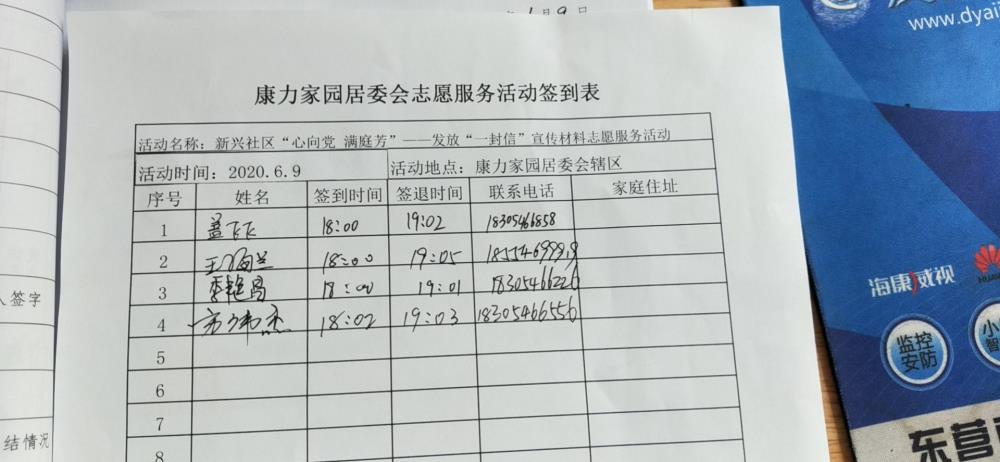 月9日
康力家园居委会志愿服务活动签到表
活动名称：新兴社区“心向党 满庭芳”——发放“一封信”宣传材料志愿服务活动
活动时间：2020.6.9 活动地点：康力家园居委会辖区
序号 姓名 签到时间 签退时间 联系电话 家庭住址
1 盖飞飞 18:00 19:02 18305466858
2 18:00 19:05
3 18:00 19:01
4 18:02 19:03 18305466556
5
6
7
8
人签字
结情况
www.dyaij
海康威视
HUA
监控
安防
小
智
东营